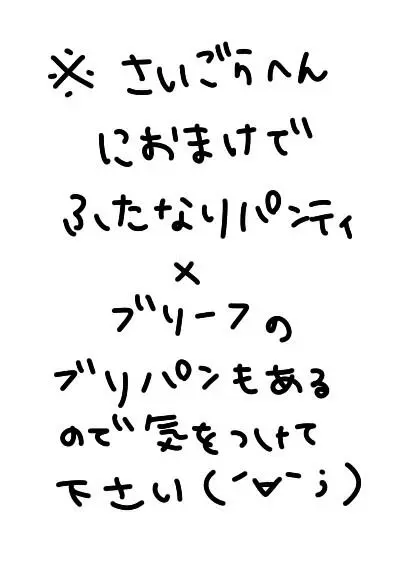 ※ さいごらへん
におまけで
ふたなりパンティ
×
ブリーフの
ブリパンもある
ので気をつけて
下さい(´∀｀;)